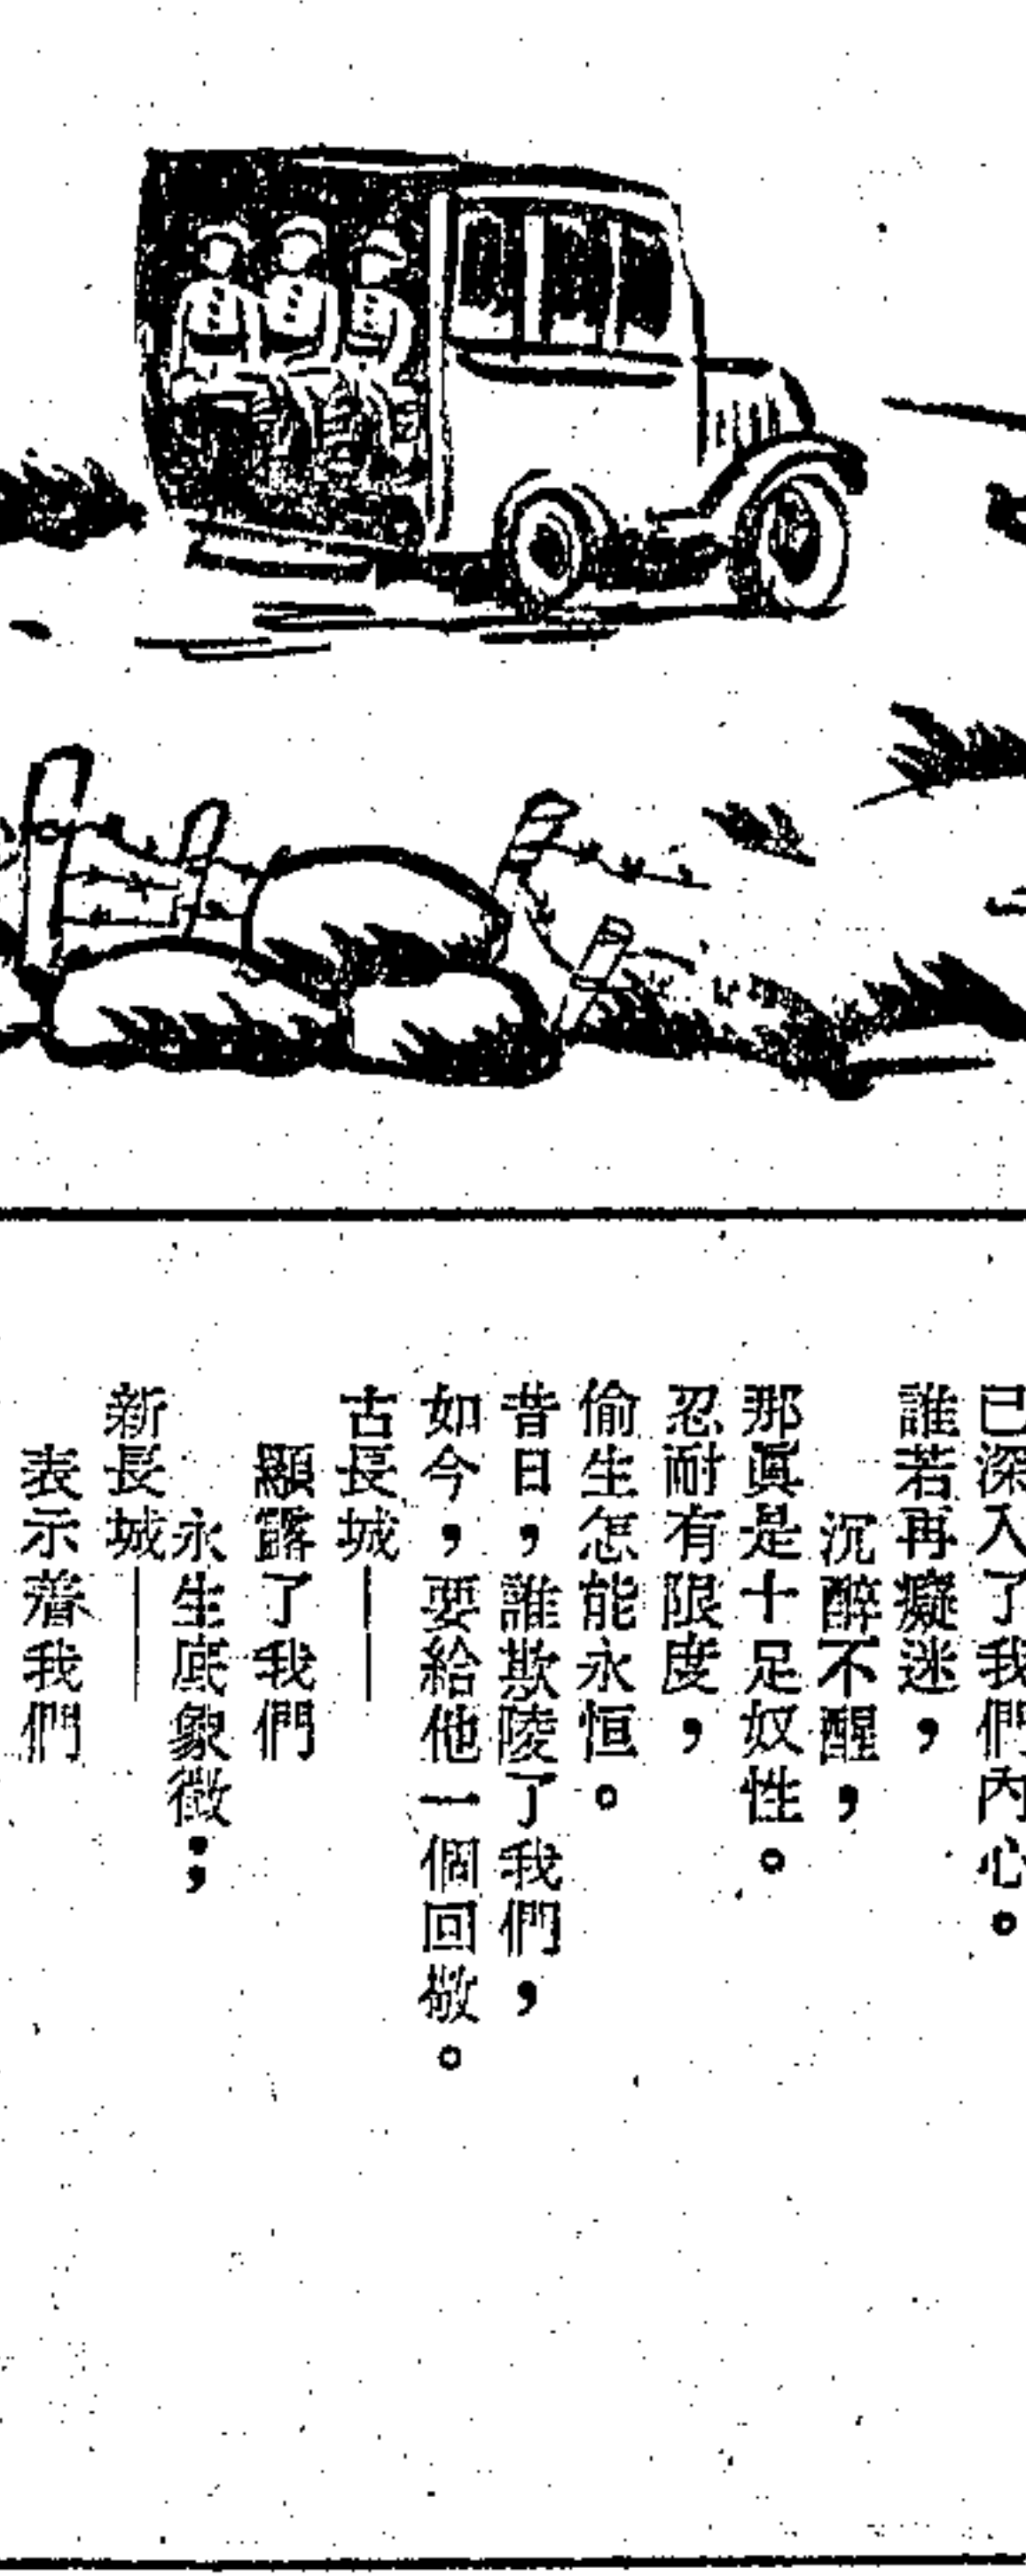 已深入了我們內心。
誰若再癡迷,
沉醉不醒,
那眞是十足奴性。
忍耐有限度,
偷生怎能永恒。
昔日,誰欺陵了我們,
如今,要給他一個回敬。
古長城——
顯露了我們
永生底象徵;
新長城——
表示着我們